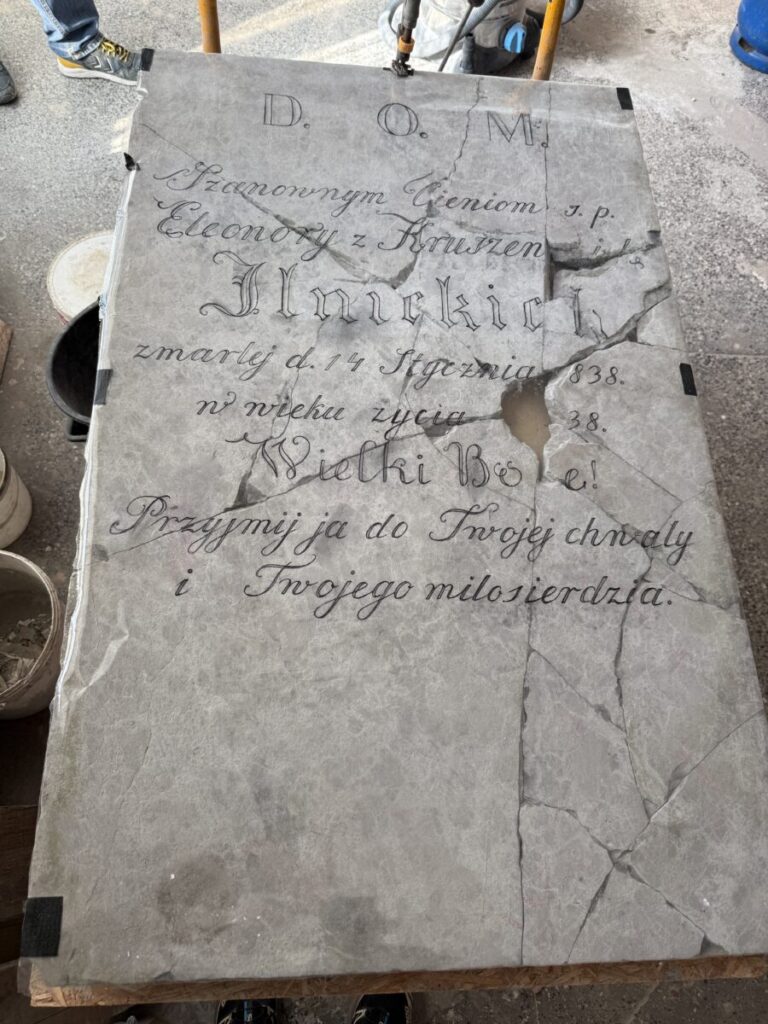 D. O. M.
Szanownym Cieniom s. p.
Eleonory z Kruszen
Ilnickich
zmarlej d. 14 Stycznia 838.
w wieku zycia 38.
Wielki Bo e!
Przyjmij ja do Twojej chwaly
i Twojego milosierdzia.